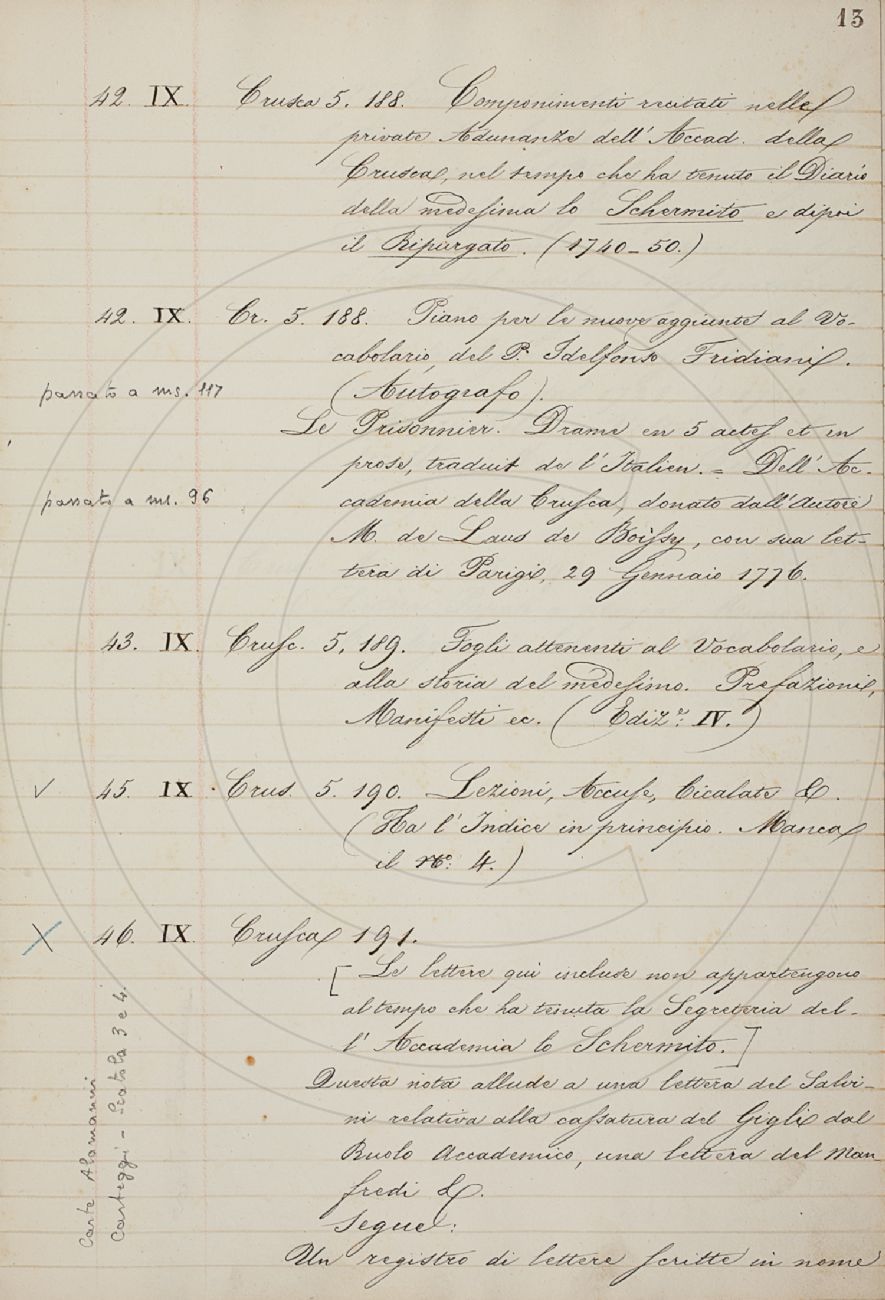 13
42. IX. Crusca 5. 188. Componimenti recitati nelle
private Adunanze dell' Accad. della
Crusca, nel tempo che ha tenuto il Diario
della medesima lo Schermito e dipoi
il Ripurgato. (1740-50.)
42. IX. Cr. 5. 188. Piano per le nuove aggiunte al Vo-
cabolario, del P. Idelfonso Fridiani.
passato a ms. 117
(Autografo).
Le Prisonnier. Drame en 5 actes et in
prose, traduit de l'Italien. = Dell' Ac-
passato a ms. 96
cademia della Crusca, donato dall'Autore
M. de Laus de Boissy, con sua let-
tera di Parigi, 29 Gennaio 1776.
43. IX. Crusc. 5. 189. Fogli attenenti al Vocabolario, e
alla storia del medesimo. Prefazioni,
Manifesti ec. (Ediz.e: IV.)
√ 45. IX. Crus. 5. 190. Lezioni, Accuse, Cicalate &.
(Ha l'Indice in principio. Manca
il No: 4.)
X 46. IX. Crusca 191.
[Le lettere qui incluse non appartengono
al tempo che ha tenuta la Segreteria del-
l' Accademia lo Schermito.]
Questa nota allude a una lettera del Salvi-
ni relativa alla cassatura del Gigli dal
Ruolo Accademico, una lettera del Man-
fredi &.
Segue:
Un registro di lettere scritte in nome
Carte Alamanni
Carteggi - Scatola 3 e 4.